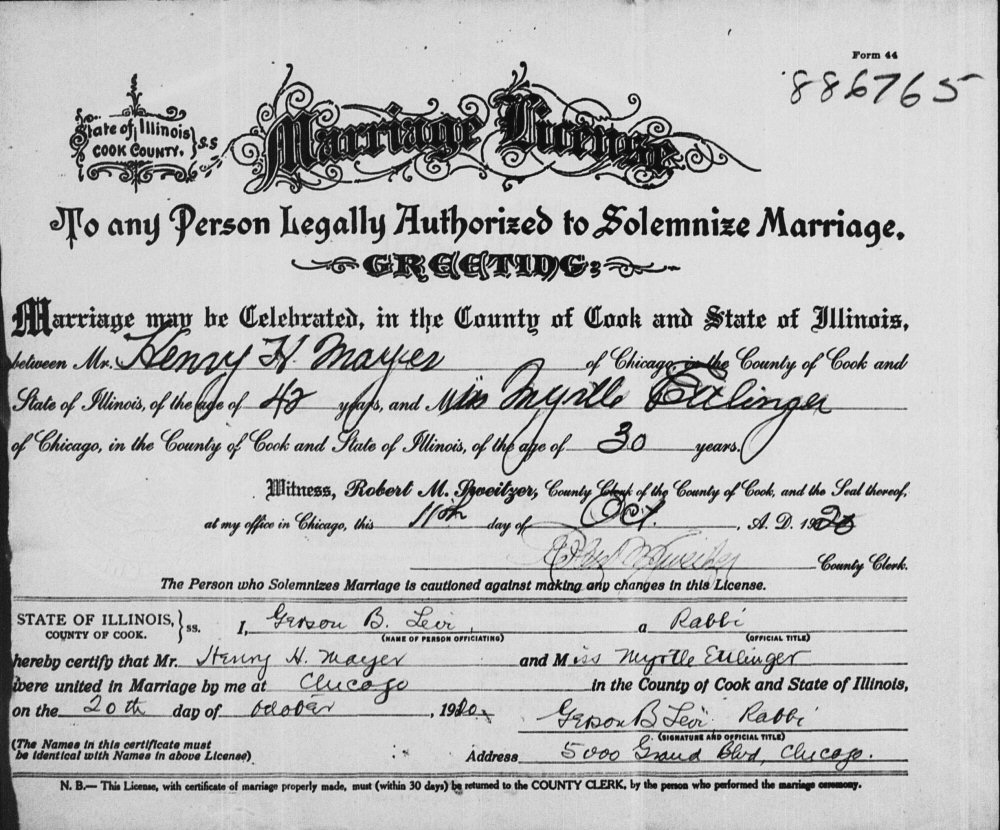 Form 44
886765
State of Illinois
COOK COUNTY. } S.S
Marriage License
To any Person Legally Authorized to Solemnize Marriage,
GREETING:
Marriage may be Celebrated, in the County of Cook and State of Illinois,
between Mr. Henry H. Mayer of Chicago, in the County of Cook and
State of Illinois, of the age of 42 years, and Miss Myrtle Ettlinger
of Chicago, in the County of Cook and State of Illinois, of the age of 30 years.
Witness, Robert M. Sweitzer, County Clerk of the County of Cook, and the Seal thereof,
at my office in Chicago, this 11th day of Oct. , A. D. 1920
Robert M Sweitzer County Clerk.
The Person who Solemnizes Marriage is cautioned against making any changes in this License.
STATE OF ILLINOIS, } ss. I, Gerson B. Levi, a Rabbi
COUNTY OF COOK. (NAME OF PERSON OFFICIATING) (OFFICIAL TITLE)
hereby certify that Mr. Henry H. Mayer and Miss Myrtle Ettlinger
were united in Marriage by me at Chicago in the County of Cook and State of Illinois,
on the 20th day of October , 1920. Gerson B Levi Rabbi
(SIGNATURE AND OFFICIAL TITLE)
(The Names in this certificate must
be identical with Names in above License) Address 5000 Grand Blvd, Chicago.
N. B.— This License, with certificate of marriage properly made, must (within 30 days) be returned to the COUNTY CLERK, by the person who performed the marriage ceremony.